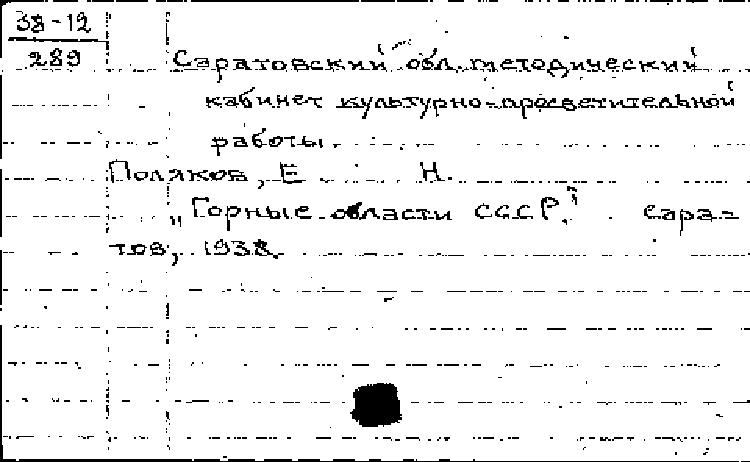 38-12
289
Саратовский обл. методический
кабинет культурно-просветительной
работы.
Поляков, Е. Н.
„Горные области СССР." Сара-
тов, 1938.